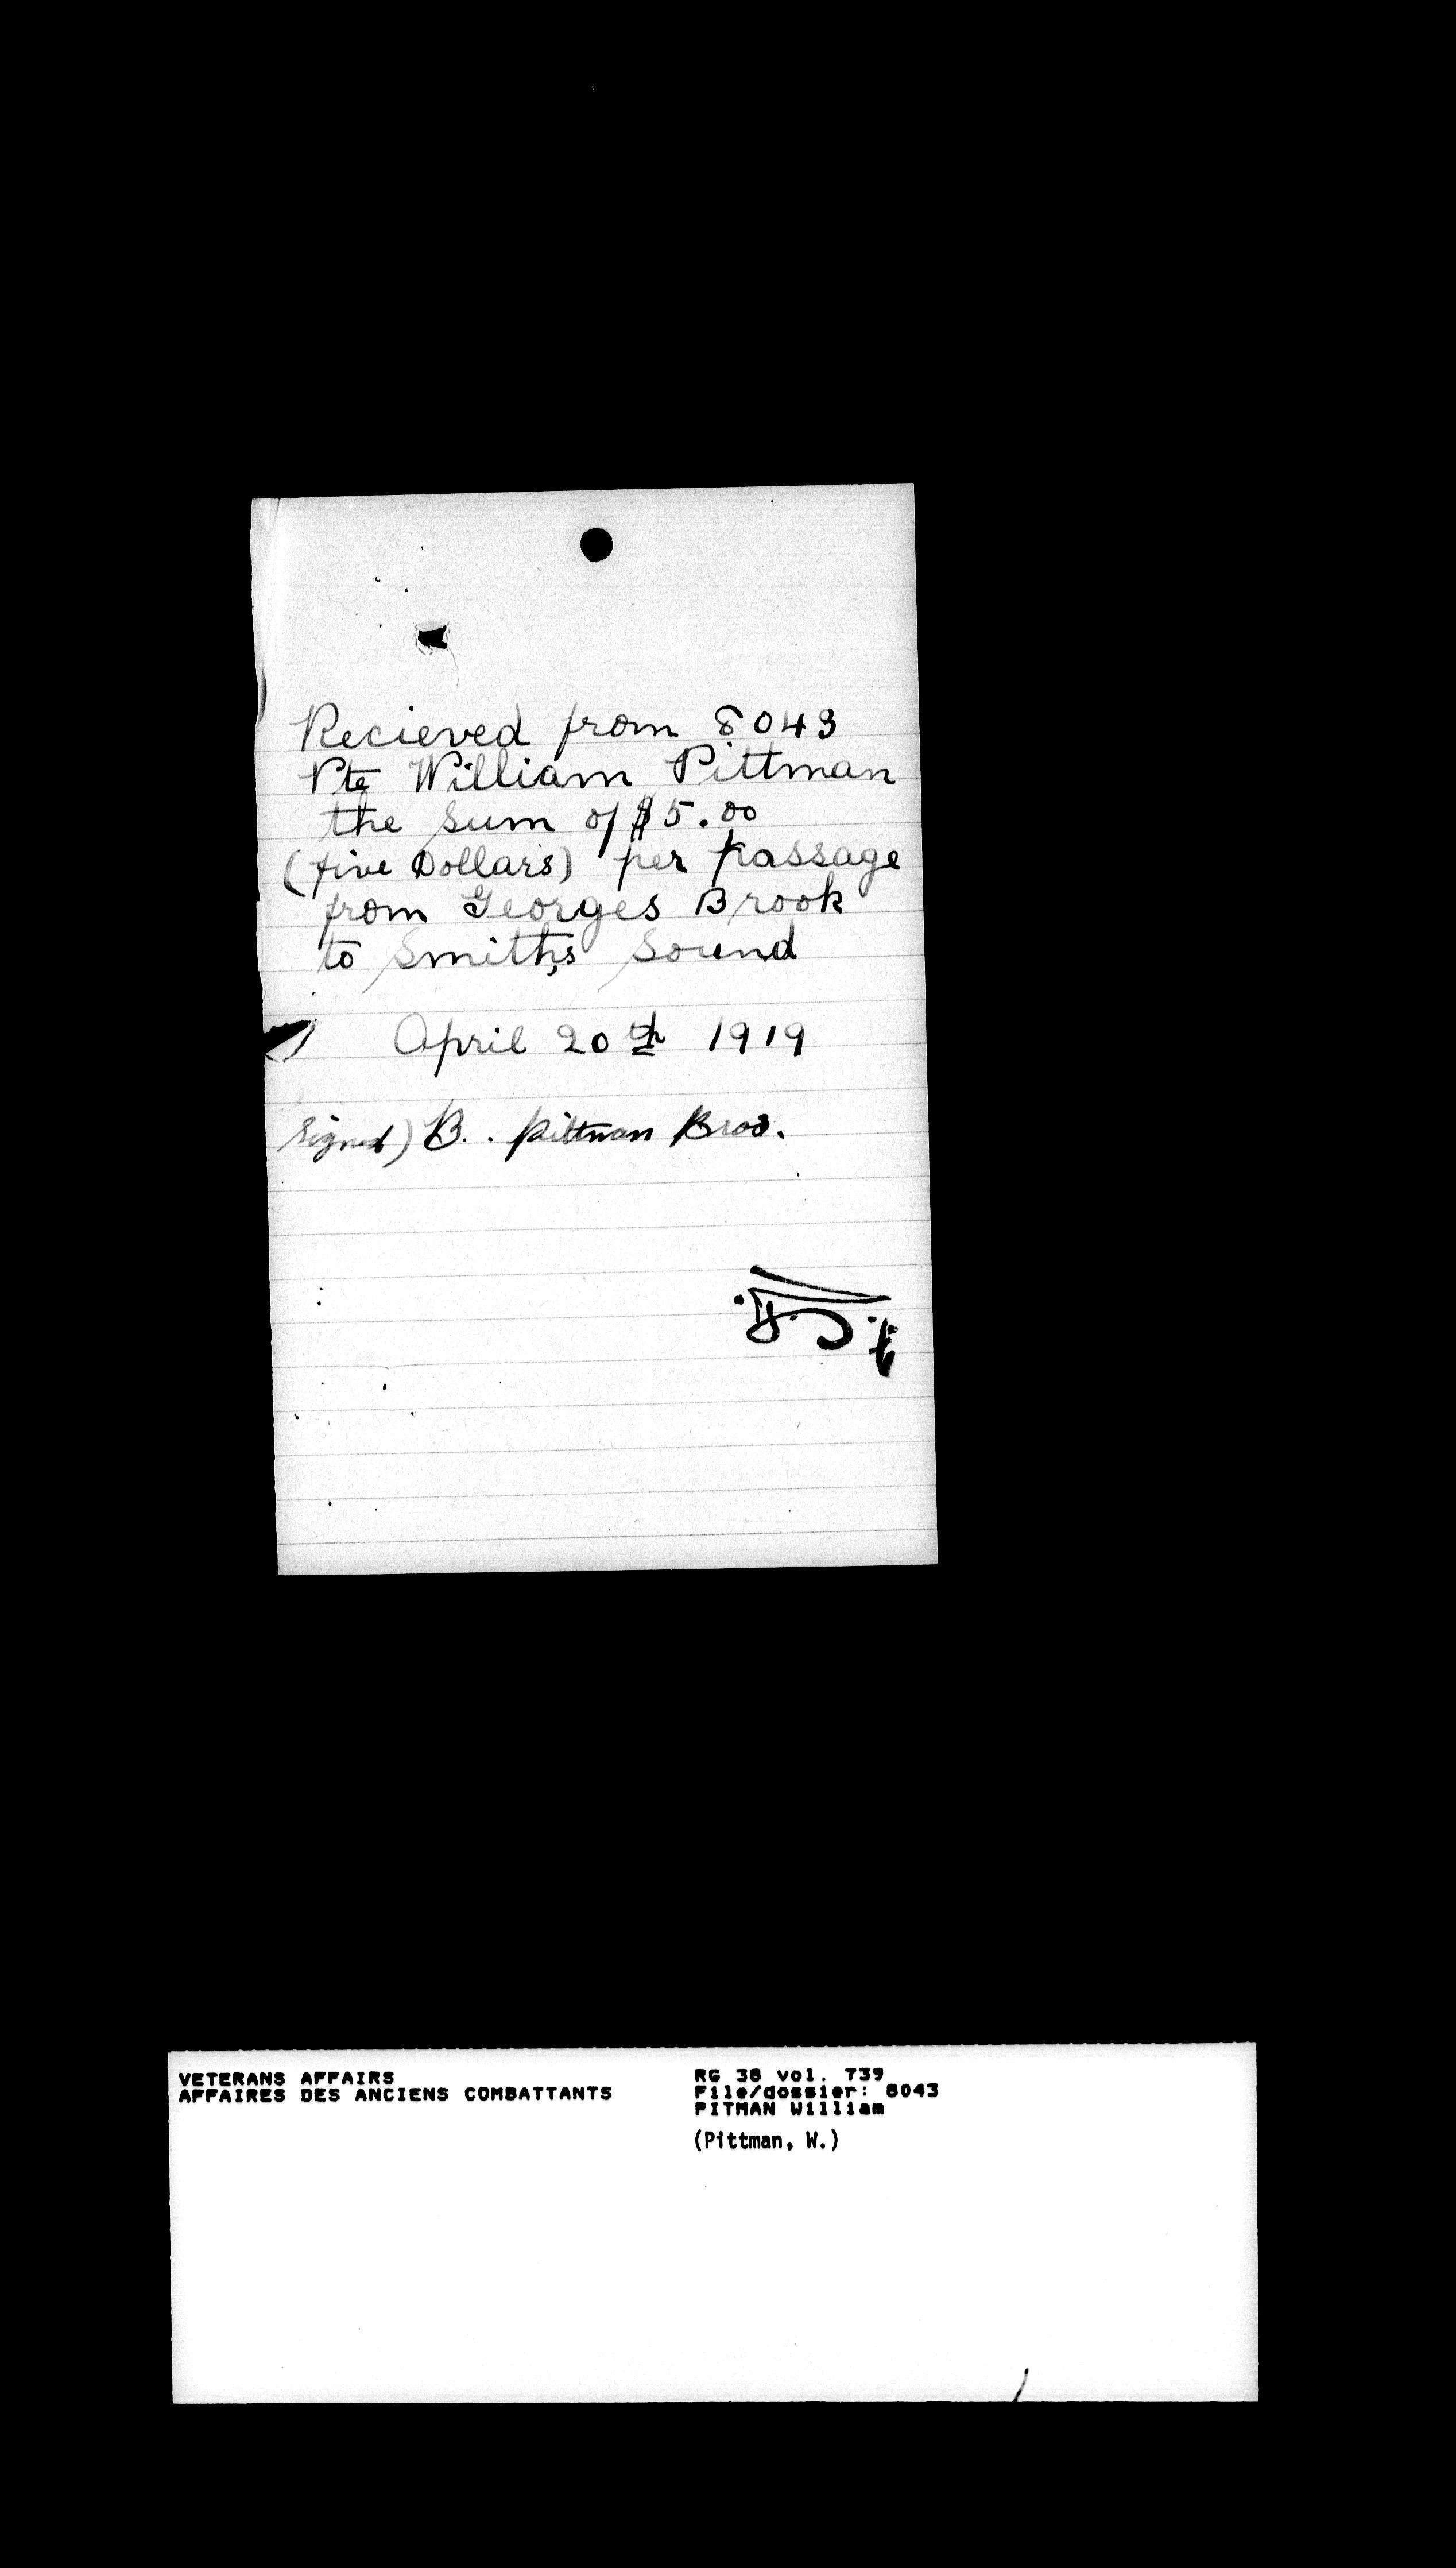 Recieved from 8043
Pte William Pittman
the sum of $5.00
(five Dollars) per passage
from Georges Brook
to Smith's Sound
April 20th 1919
signed) B.. Pittman Bros.
VETERANS AFFAIRS
AFFAIRES DES ANCIENS COMBATTANTS
RG 38 vol. 739
File/dossier: 8043
PITMAN William
(Pittman, W.)